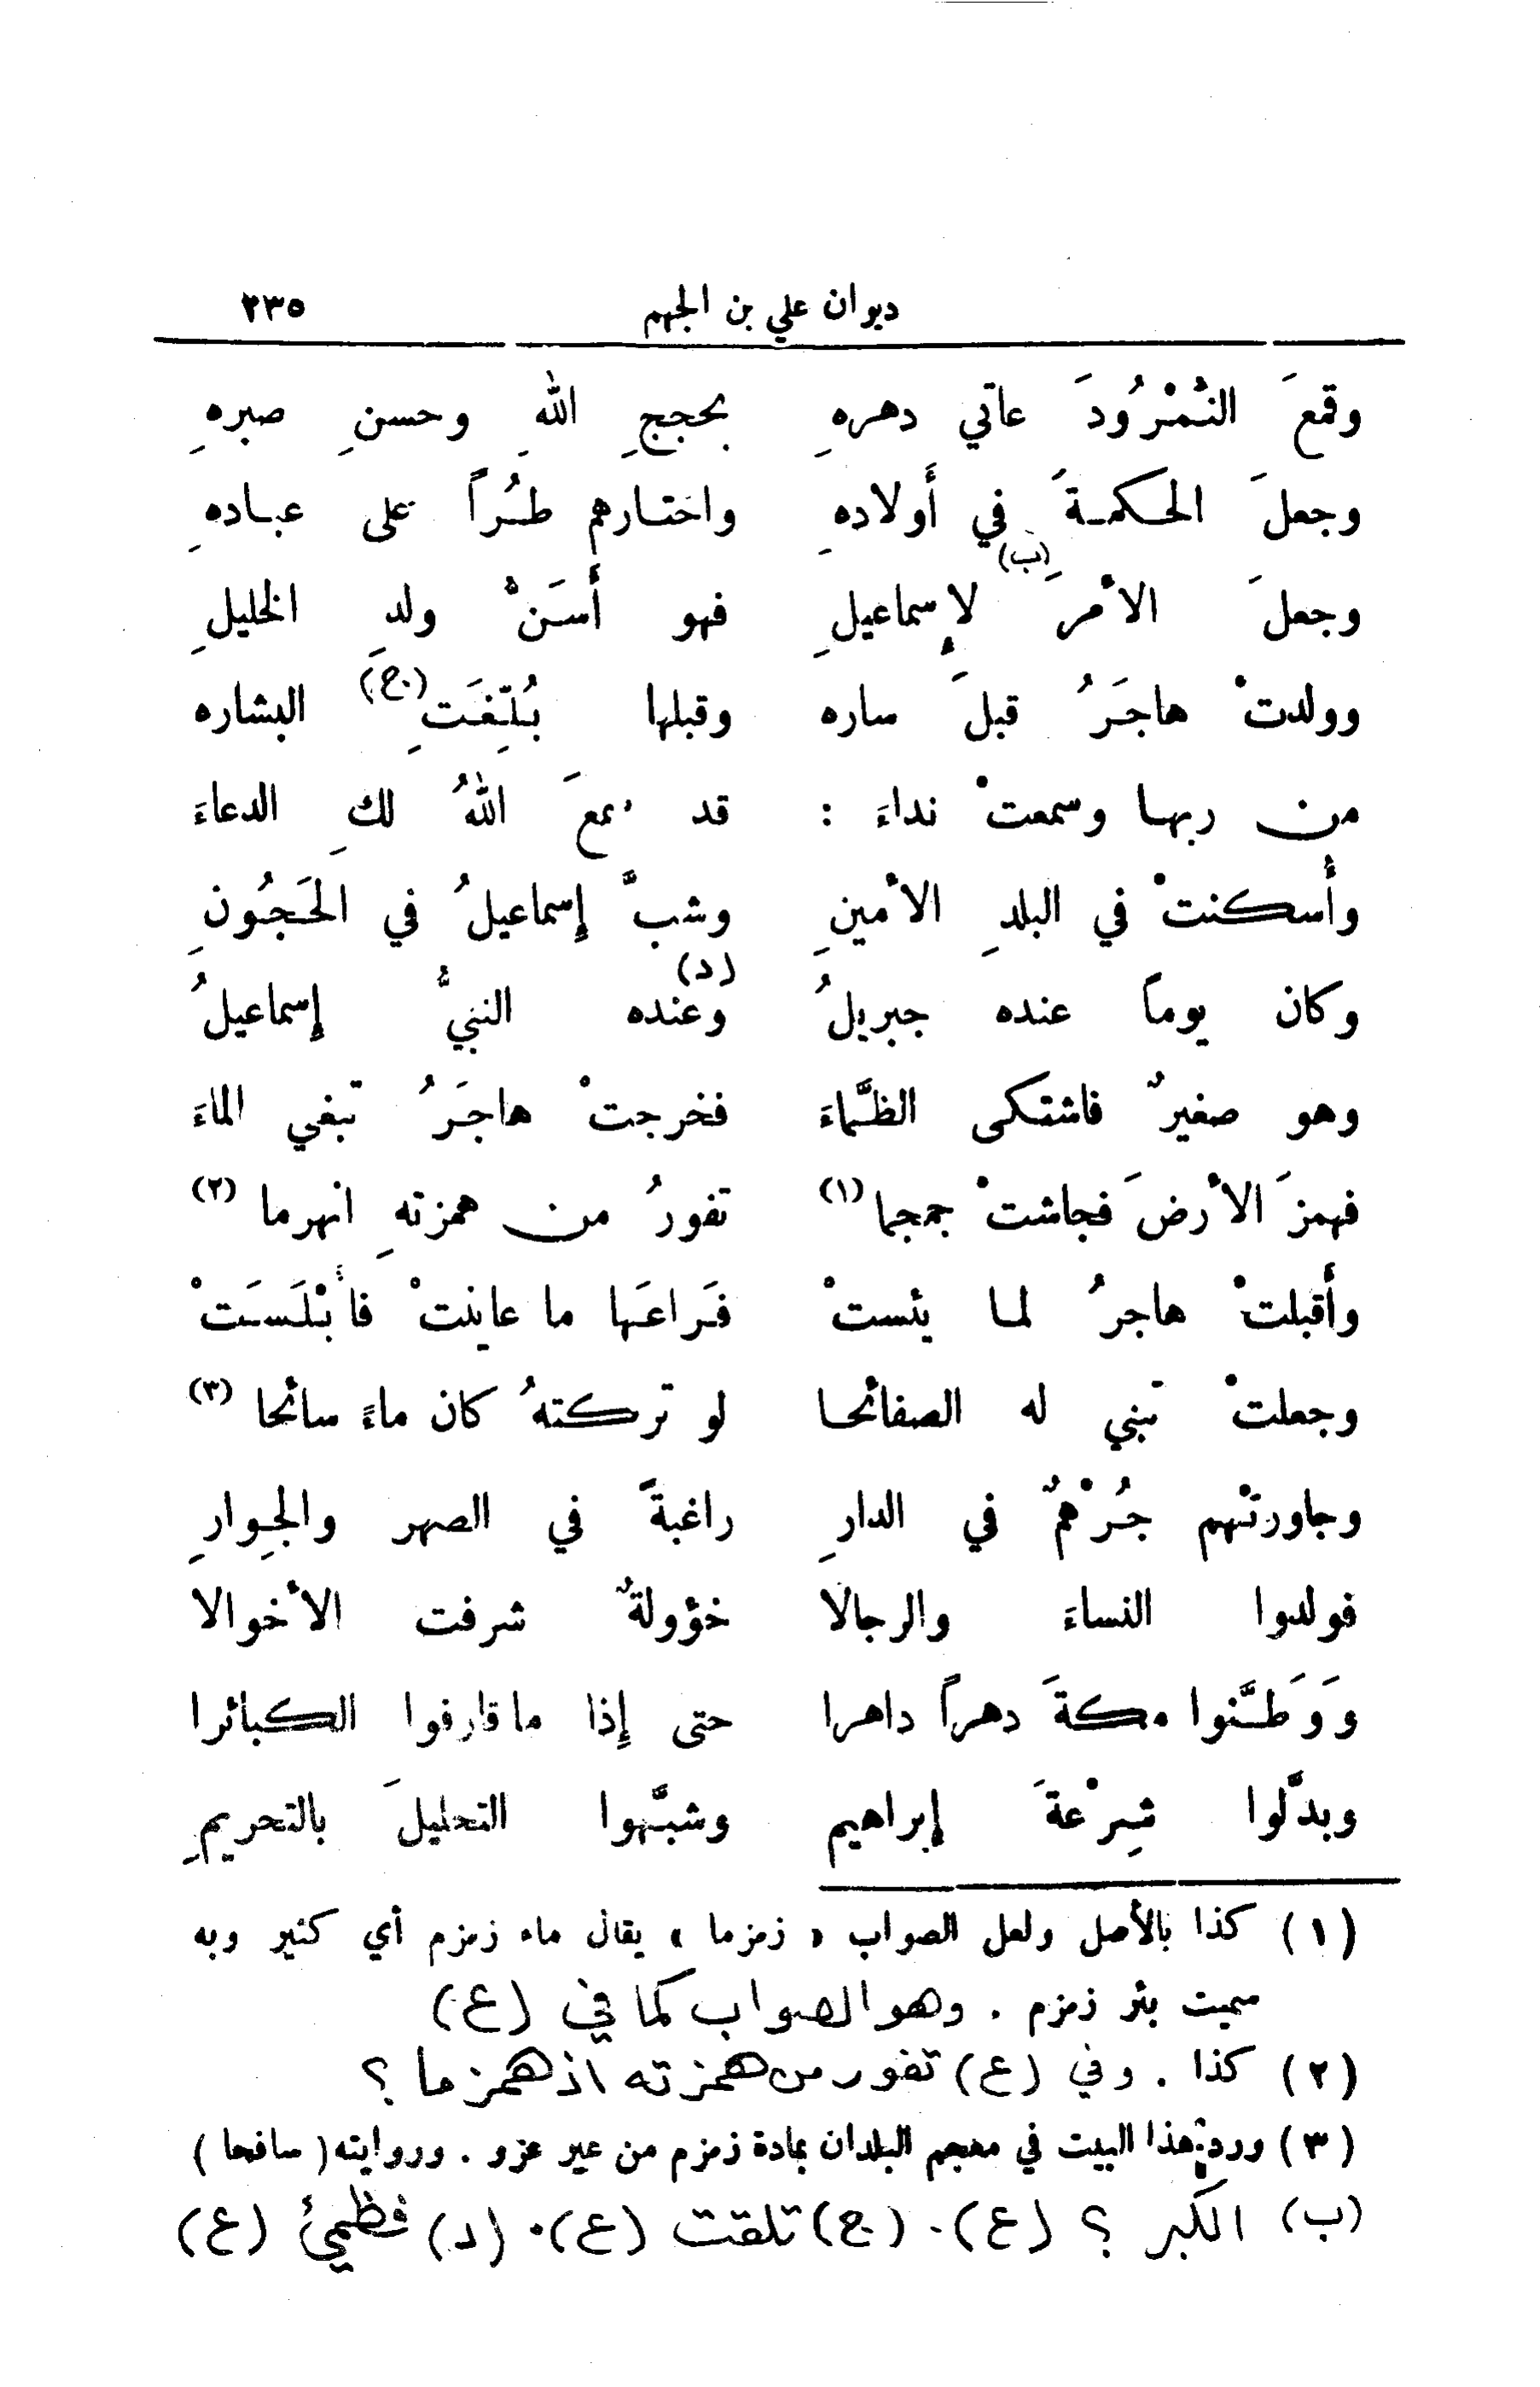 ديوان علي بن الجهم ٢٣٥
وقمعَ النُّمْرُودَ عاتي دهرهِ بحججِ اللهِ وحسنِ صبرهِ
وجعلَ الحكمةَ في أولاده واختارهم طُرّاً على عبادهِ
وجعلَ الأمرَ (ب) لإسماعيلِ فهو أسَنُّ ولدِ الخليلِ
وولدتْ هاجَرُ قبلَ ساره وقبلها بُلِّغَتِ (ج) البشاره
من ربها وسمعتْ نداءَ : قد سمعَ اللهُ لكِ الدعاءَ
وأُسكنتْ في البلدِ الأمينِ وشبَّ إسماعيلُ في الحَجُونِ
وكان يوماً عنده جبريلُ وعنده (د) النبيُّ إسماعيلُ
وهو صغيرٌ فاشتكى الظَّماءَ فخرجتْ هاجَرُ تبغي الماءَ
فهمزَ الأرضَ فجاشتْ جمجما (١) تفورُ من همزتهِ انهرما (٢)
وأقبلتْ هاجرُ لما يئستْ فَراعَها ما عاينتْ فأبْلَسَتْ
وجعلتْ تبني له الصفائحا لو تركتهُ كان ماءً سائحا (٣)
وجاورتْهم جُرْهمٌ في الدارِ راغبةً في الصهر والجِوارِ
فولدوا النساءَ والرجالا خؤولةٌ شرفت الأخوالا
وَوَطَّنوا مكةَ دهراً داهرا حتى إذا ما قارفوا الكبائرا
وبدَّلوا شِرْعةَ إبراهيم وشبَّهوا التحليلَ بالتحريمِ
(١) كذا بالأصل ولعل الصواب « زمزما » يقال ماء زمزم أي كثير وبه
سميت بئر زمزم . وهو الصواب كما في (ع)
(٢) كذا . وفي (ع) تفور من همزته اذ همزما ؟
(٣) ورد هذا البيت في معجم البلدان بمادة زمزم من غير عزو . وروايته ( سافحا )
(ب) الكبر ؟ (ع) . (ج) تلقت (ع) . (د) فظمئ (ع)